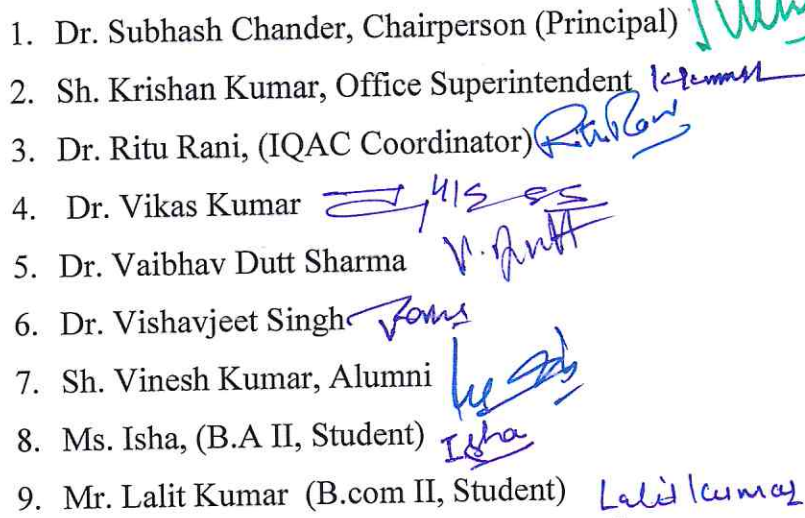 1. Dr. Subhash Chander, Chairperson (Principal)
2. Sh. Krishan Kumar, Office Superintendent
3. Dr. Ritu Rani, (IQAC Coordinator) Ritu Rani
4. Dr. Vikas Kumar
5. Dr. Vaibhav Dutt Sharma V. Dutt
6. Dr. Vishavjeet Singh
7. Sh. Vinesh Kumar, Alumni
8. Ms. Isha, (B.A II, Student) Isha
9. Mr. Lalit Kumar (B.com II, Student) Lalit Kumar